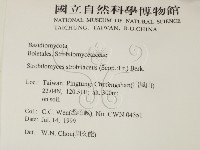 國立自然科學博物館
NATIONAL MUSEUM OF NATURAL SCIENCE
TAICHUNG, TAIWAN, R.O.CHINA
Basidiomycota
Boletales Strobilomycetaceae
Strobilomyces strobilaceus (Scop.: Fr.) Berk.
Loc. Taiwan, Pingtung
22.04N, 120.51E, alt.
on soil.
Coll. C.C. Wen No. CWN 04351
Date: Jul. 14, 1999
Det. W.N. Chou